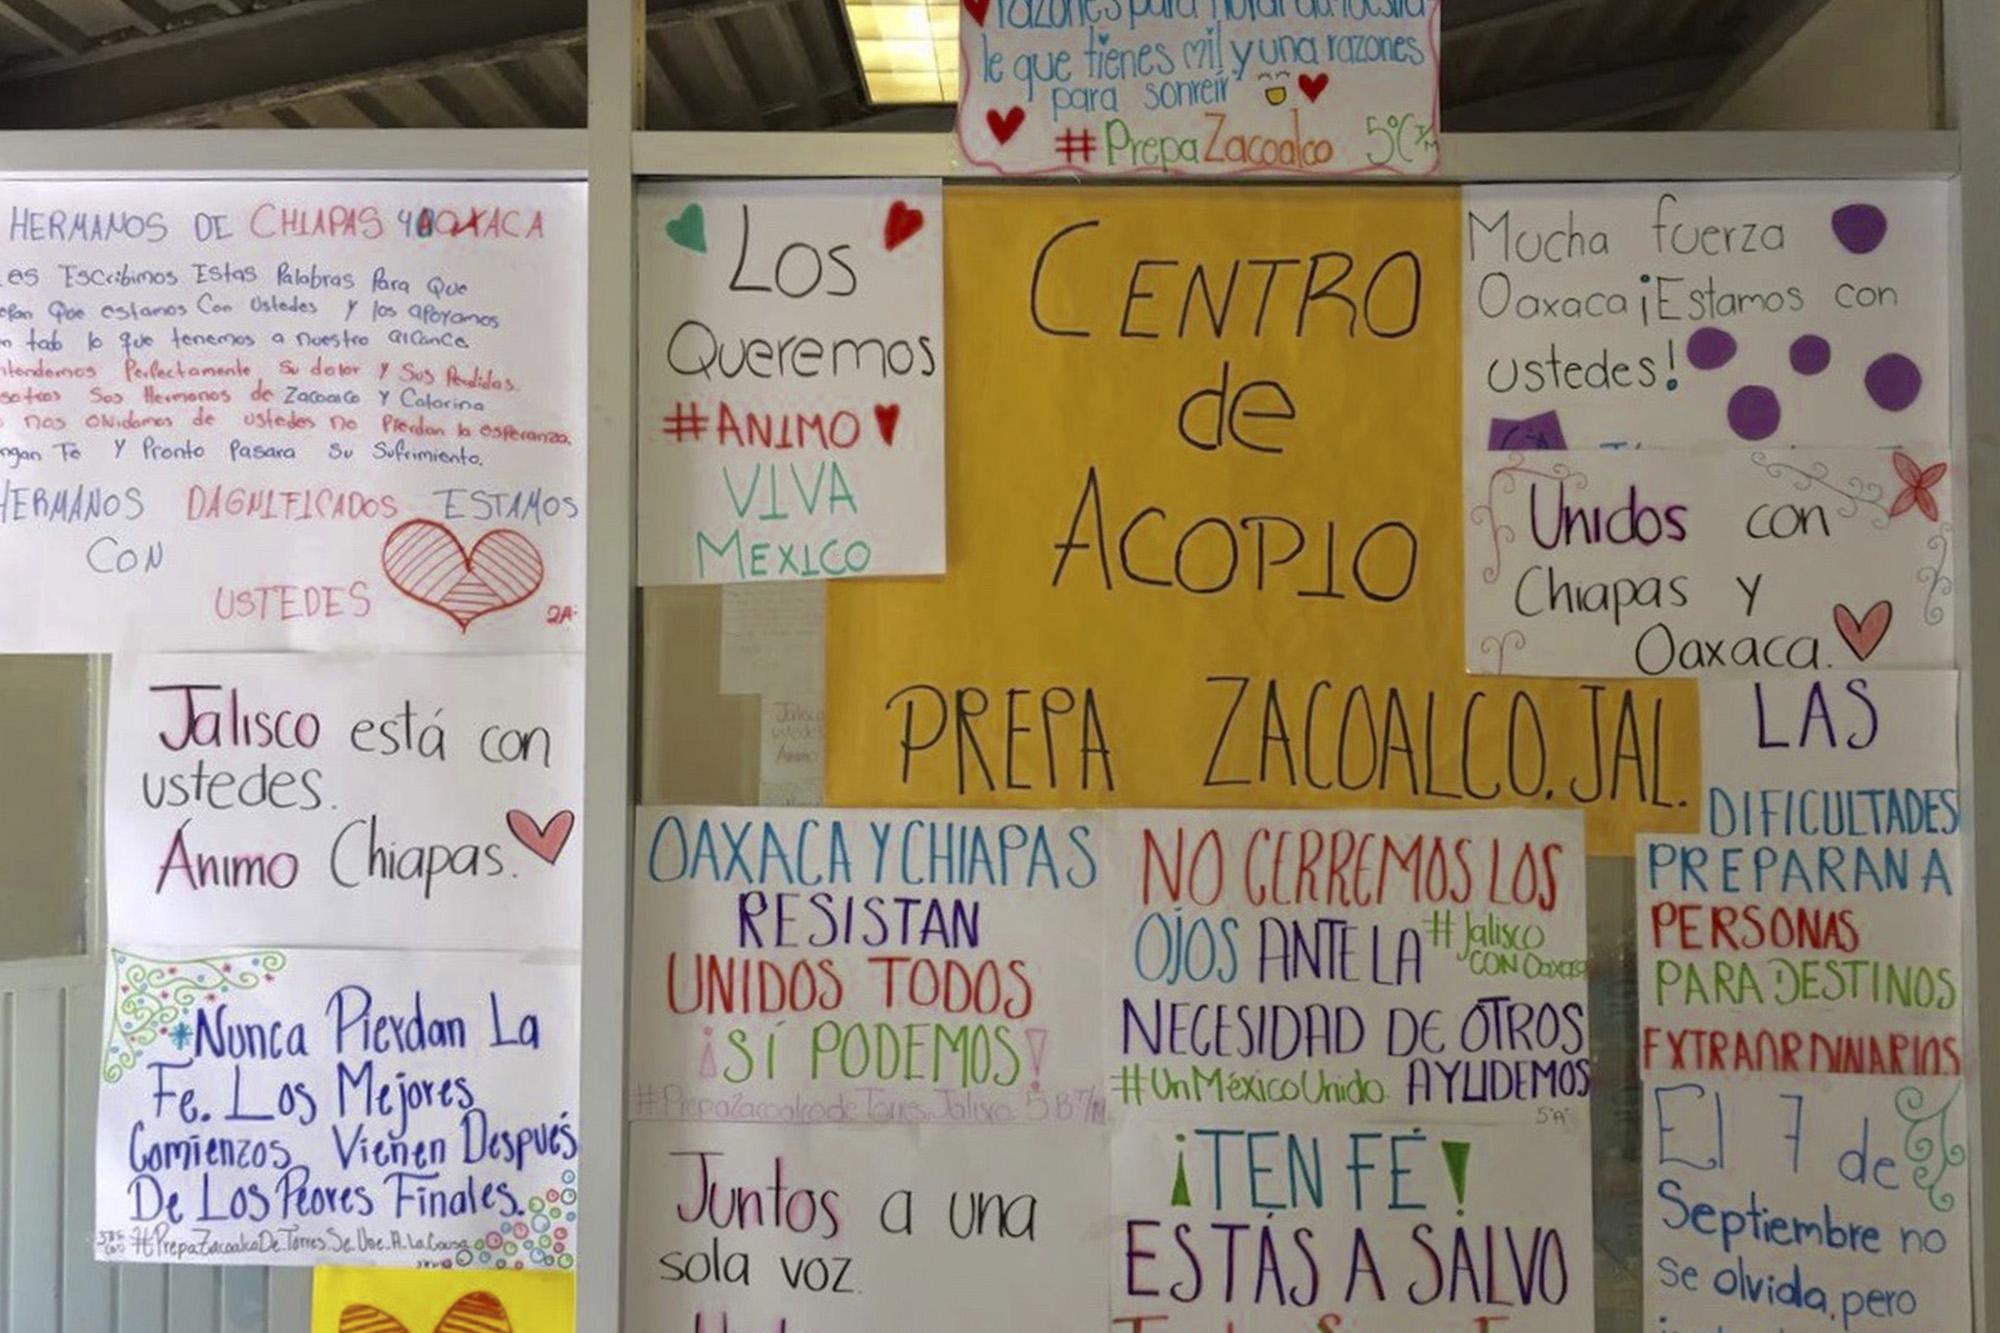 razones para
le que tienes mil y una razones
para sonreír
#PrepaZacoalco 5°C T/M
HERMANOS DE CHIAPAS Y OAXACA
es Escribimos Estas Palabras Para Que
Que estamos Con Ustedes Y los apoyamos
lo que tenemos a nuestro alcance
Perfectamente Su dolor Y Sus Perdidas.
Sos Hermanos de Zacoalco Y Catarina
nos olvidamos de ustedes no Pierdan la esperanza.
Y Pronto Pasara Su Sufrimiento.
HERMANOS DAGNIFICADOS ESTAMOS
CON
USTEDES
2A
Jalisco está con
ustedes.
Animo Chiapas.
*Nunca Pierdan La
Fe. Los Mejores
Comienzos Vienen Después
De Los Peores Finales.
#PrepaZacoalcoDeTorres.Se.Une.A.La.Causa
Los
Queremos
#ANIMO
VIVA
MEXICO
CENTRO
de
ACOPIO
PREPA ZACOALCO. JAL.
Mucha fuerza
Oaxaca ¡Estamos con
ustedes!
Unidos con
Chiapas y
Oaxaca.
Jalisco
ustedes
Animo
OAXACA Y CHIAPAS
RESISTAN
UNIDOS TODOS
¡SÍ PODEMOS!
#PrepaZacoalcodeTorres, Jalisco. 5°B T/M
NO CERREMOS LOS
OJOS ANTE LA #Jalisco
CON Oaxaca
NECESIDAD DE OTROS
#UnMéxicoUnido AYUDEMOS
5°A
LAS
DIFICULTADES
PREPARAN A
PERSONAS
PARA DESTINOS
EXTRAORDINARIOS
Juntos a una
sola voz.
¡TEN FÉ!
ESTÁS A SALVO
El 7 de
Septiembre no
se olvida, pero